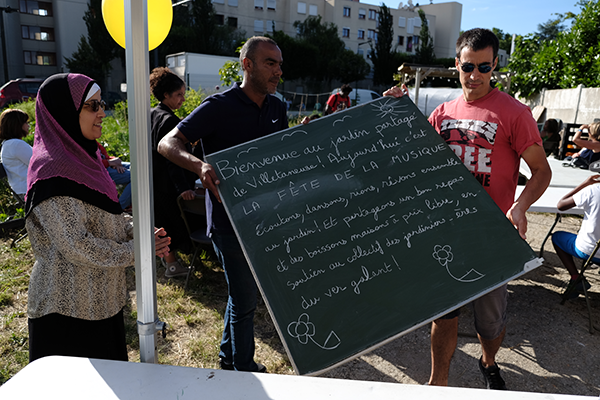 Bienvenue au jardin partagé
de Villetaneuse! Aujourd'hui c'est
LA FÊTE DE LA MUSIQUE
Écoutons, dansons, rions, rêvons ensemble
au jardin! Et partageons un bon repas
et des boissons maisons à prix libre, en
soutien au collectif des jardiniers·ères
du ver galant!